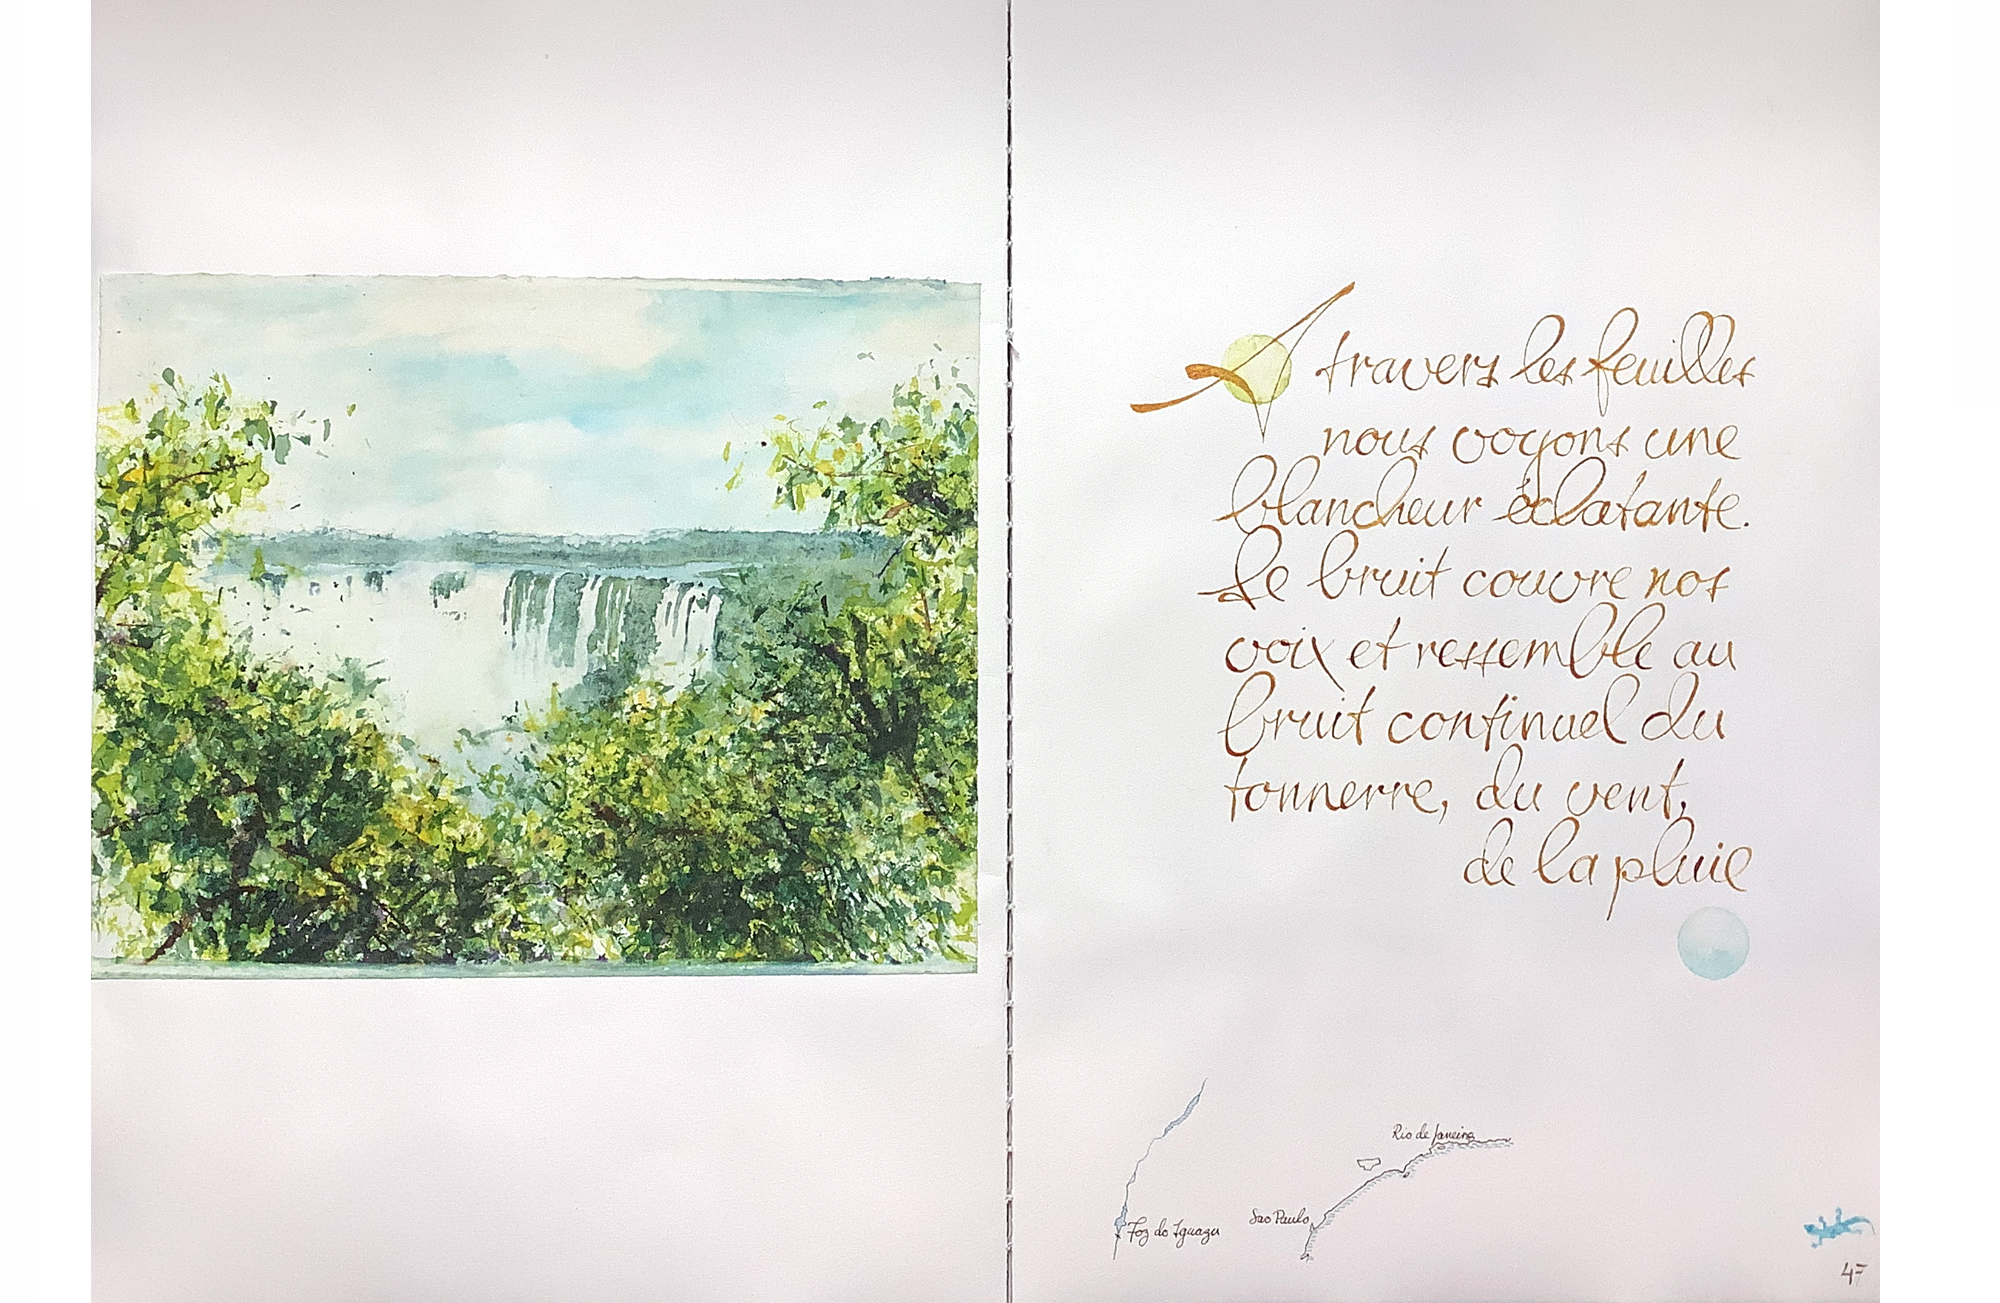 A travers les feuilles
nous voyons une
blancheur éclatante.
Le bruit couvre nos
voix et ressemble au
bruit continuel du
tonnerre, du vent,
de la pluie
Rio de Janeiro
Sao Paulo
Foz do Iguazu
47